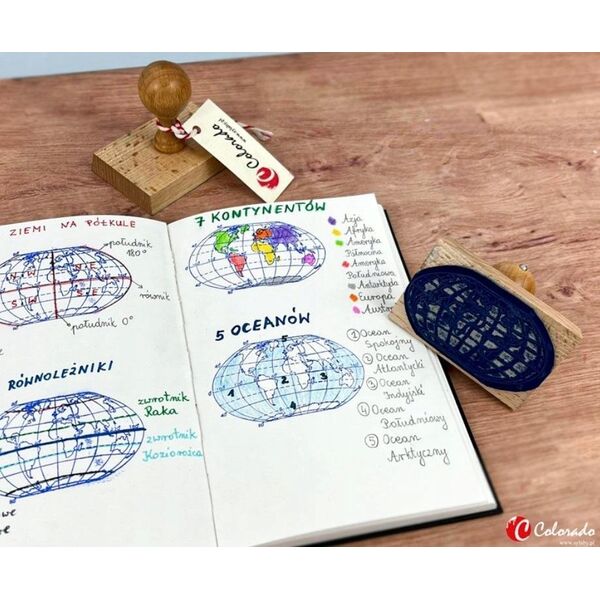 Colorado
www.sylaby.pl
ZIEMI NA PÓŁKULE
południk
180°
N W
N E
S W
S E
równik
południk 0°
RÓWNOLEŻNIKI
zwrotnik
Raka
zwrotnik
Koziorożca
7 KONTYNENTÓW
Azja
Afryka
Ameryka
Północna
Ameryka
Południowa
Antarktyda
Europa
5 OCEANÓW
5
1
2
3
4
① Ocean
Spokojny
② Ocean
Atlantycki
③ Ocean
Indyjski
④ Ocean
Południowy
⑤ Ocean
Arktyczny
Colorado
www.sylaby.pl